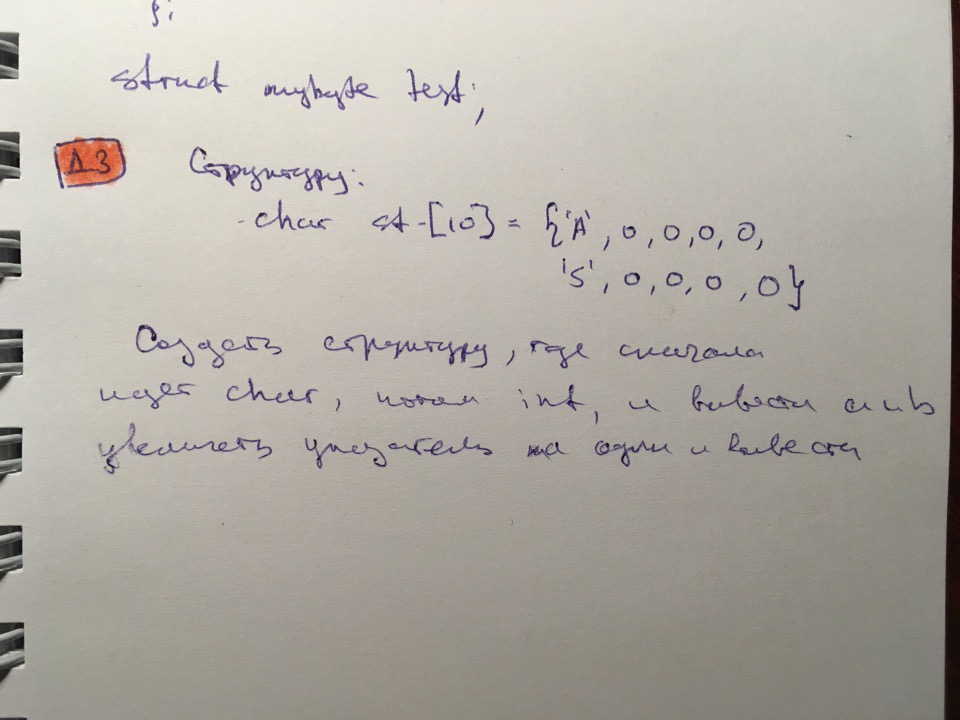 };
struct mybyte test;
ДЗ Структуру:
- char st-[10] = {'A', 0, 0, 0, 0,
'S', 0, 0, 0, 0}
Создать структуру, где сначала
идет char, потом int, и вывести a и b
увеличить указатель на один и вывести